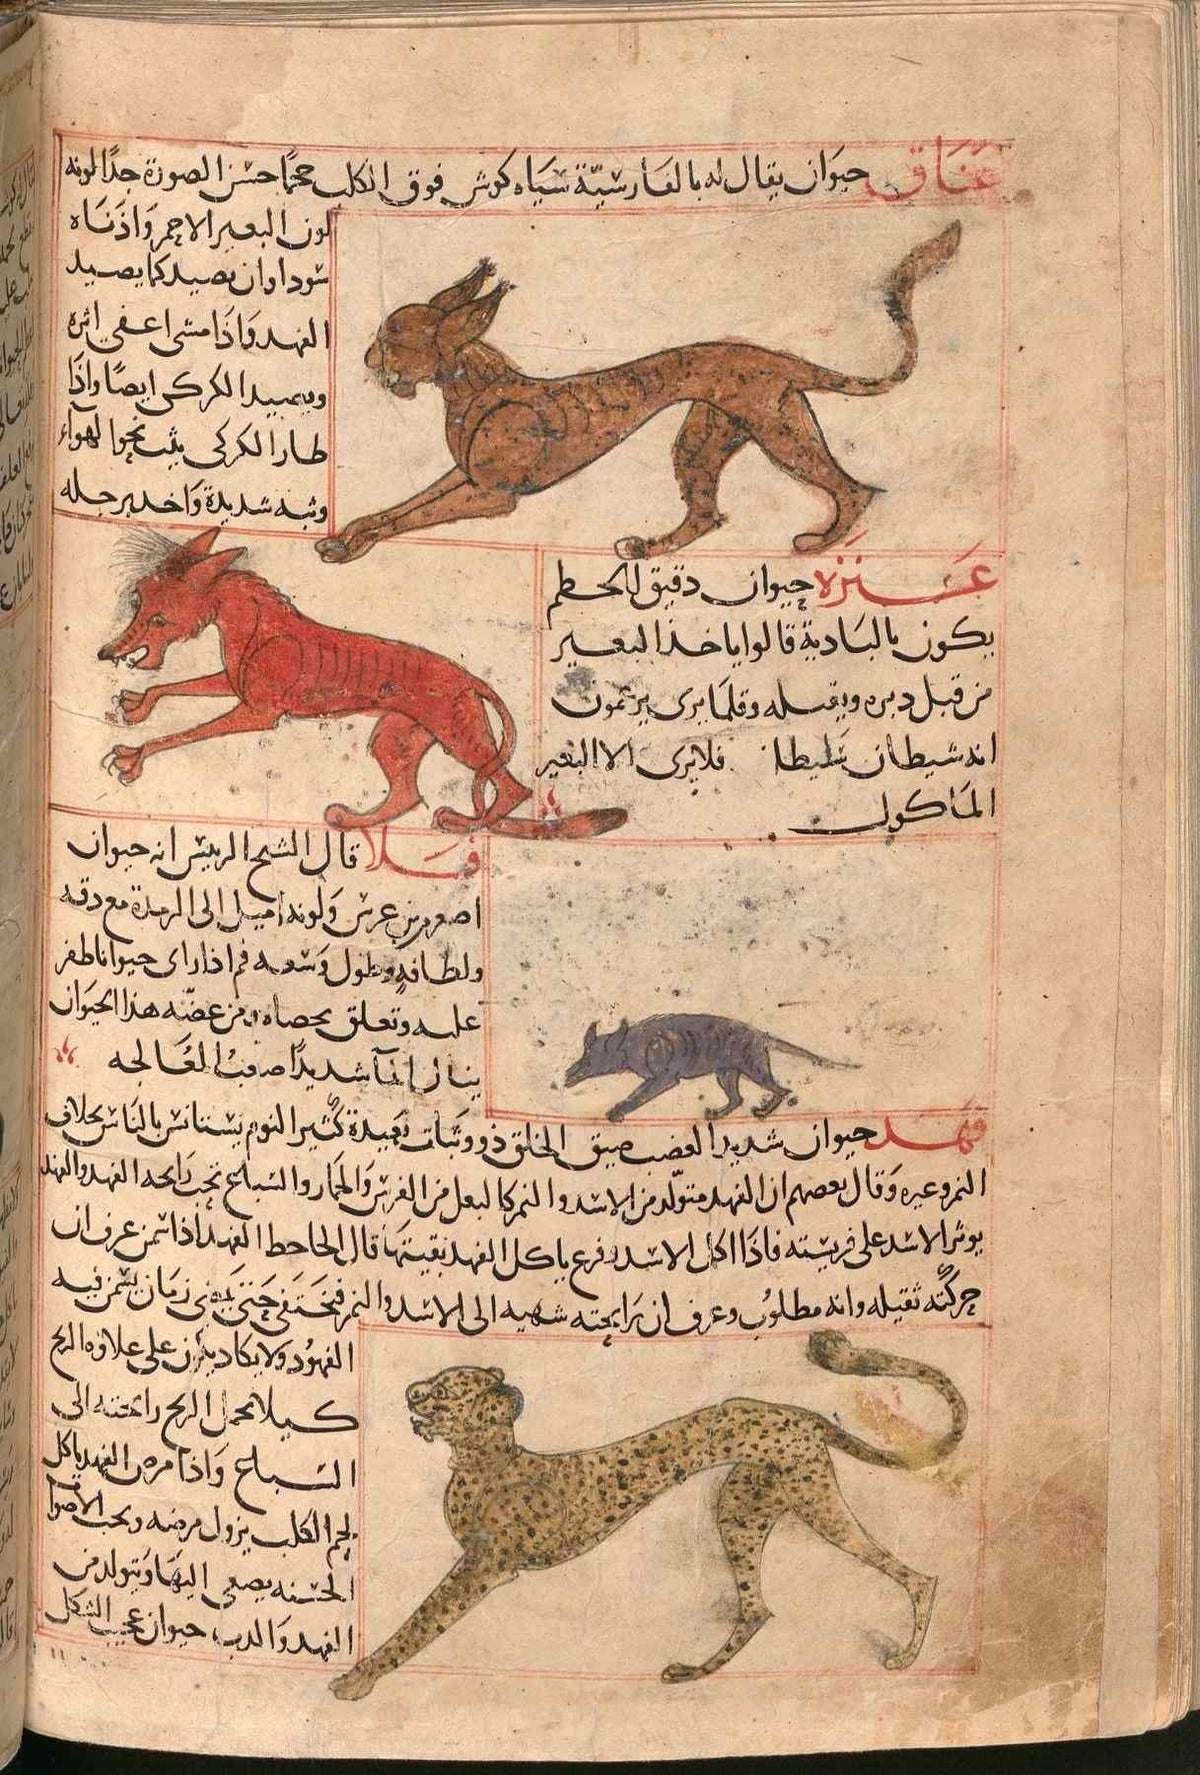 عناق حيوان يقال له بالفارسية سياه كوش فوق الكلب حجما حسن الصورة جدا لونه
لون البعير الاحمر واذناه
سوداوان يصيد كما يصيد
الفهد واذا مشى اعفى اثره
ويصيد الكركى ايضا واذا
طار الكركى يثب نحوا لهوآء
وثبه شديدة واخد برجله
عنزه حيوان دقيق الخطم
يكون بالبادية قالوا ياخذ البعير
من قبل دبره ويقتله وقلما يرى يزعمون
انه شيطان فلا يرى الا البعير
الماكول
فسلا قال الشيخ الرييس انه حيوان
اصغر من ابن عرس ولونه اميل الى الرمدة مع دقه
ولطافه وطول وسعه فم اذا راى حيوانا طفر
عليه وتعلق بخصاه ومن عضه هذا الحيوان
ينال الما شديدا صعب المعالجه
فهد حيوان شديد الغضب ضيق الخلق ذو وثبات بعيدة كثير النوم يستانس بالناس بخلاف
النمر وغيره وقال بعضهم ان الفهد متولد من الاسد والنمر كالبغل من الفرس والحمار والسباع تحب رايحه الفهد والفهد
يوثر الاسد على فريسته فاذا اكل الاسد وفرغ ياكل الفهد بقيتها قال الجاحظ الفهد اذا سمن عرف ان
حركته ثقيله وانه مطلوب وعرف ان رايحته شهيه الى الاسد والنمر فيختفى حتى زمان يسمن فيه
الفهود ولا يكاد يكون على علاوه الريح
كيلا يحمل الريح رايحته الى
السباع واذا مرض الفهد ياكل
لحم الكلب يزول مرضه ويحب الاصوات
الحسنه يصغى اليها ويتولد من
الفهد والدب حيوان عجيب الشكل